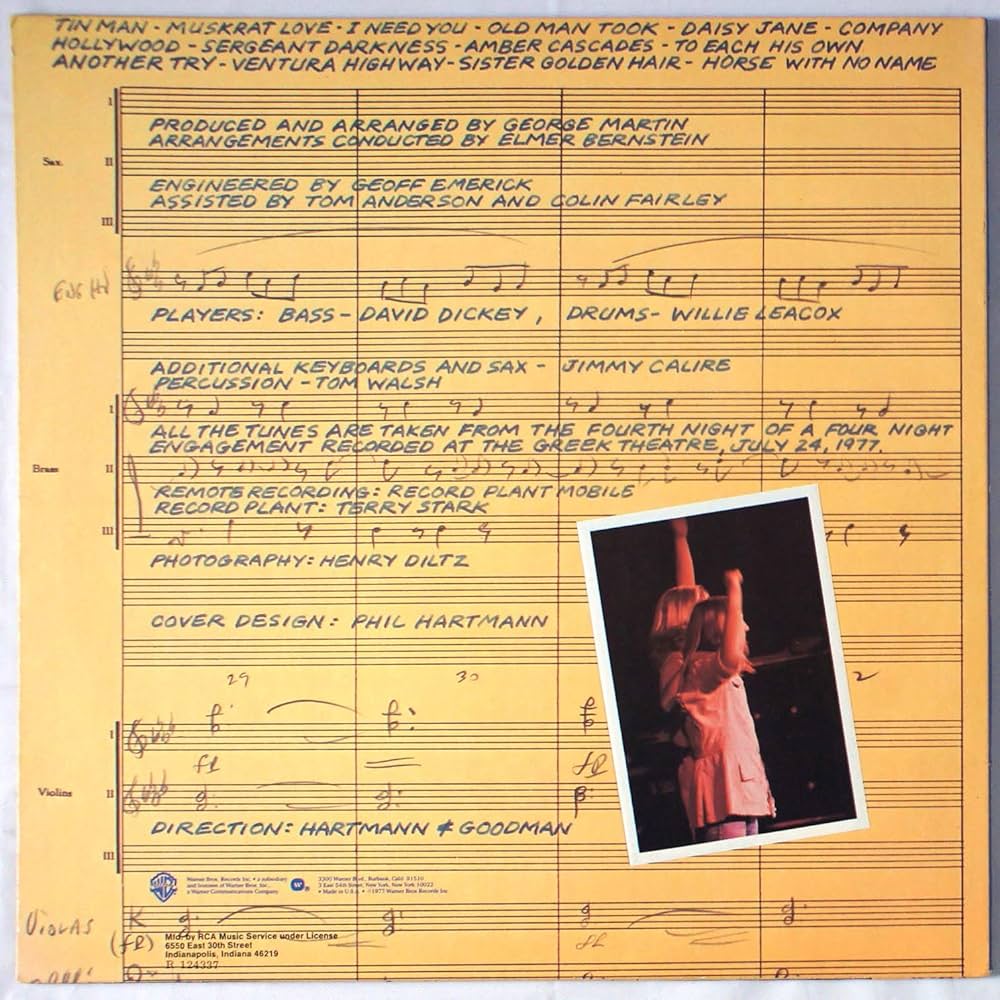 TIN MAN - MUSKRAT LOVE - I NEED YOU - OLD MAN TOOK - DAISY JANE - COMPANY
HOLLYWOOD - SERGEANT DARKNESS - AMBER CASCADES - TO EACH HIS OWN
ANOTHER TRY - VENTURA HIGHWAY - SISTER GOLDEN HAIR - HORSE WITH NO NAME
I
PRODUCED AND ARRANGED BY GEORGE MARTIN
ARRANGEMENTS CONDUCTED BY ELMER BERNSTEIN
Sax. II
ENGINEERED BY GEOFF EMERICK
ASSISTED BY TOM ANDERSON AND COLIN FAIRLEY
III
PLAYERS: BASS - DAVID DICKEY, DRUMS - WILLIE LEACOX
ADDITIONAL KEYBOARDS AND SAX - JIMMY CALIRE
PERCUSSION - TOM WALSH
I
ALL THE TUNES ARE TAKEN FROM THE FOURTH NIGHT OF A FOUR NIGHT
ENGAGEMENT RECORDED AT THE GREEK THEATRE, JULY 24, 1977.
Brass II
REMOTE RECORDING: RECORD PLANT MOBILE
RECORD PLANT: TERRY STARK
III
PHOTOGRAPHY: HENRY DILTZ
COVER DESIGN: PHIL HARTMANN
29 30 2
I
Violins II
DIRECTION: HARTMANN & GOODMAN
III
Warner Bros. Records Inc. • a subsidiary
and licensee of Warner Bros. Inc.,
a Warner Communications Company
3300 Warner Blvd., Burbank, Calif. 91510
3 East 54th Street, New York, New York 10022
• Made in U.S.A. • ©1977 Warner Bros. Records Inc.
VIOLAS
Mfd. by RCA Music Service under License
6550 East 30th Street
Indianapolis, Indiana 46219
R 124337